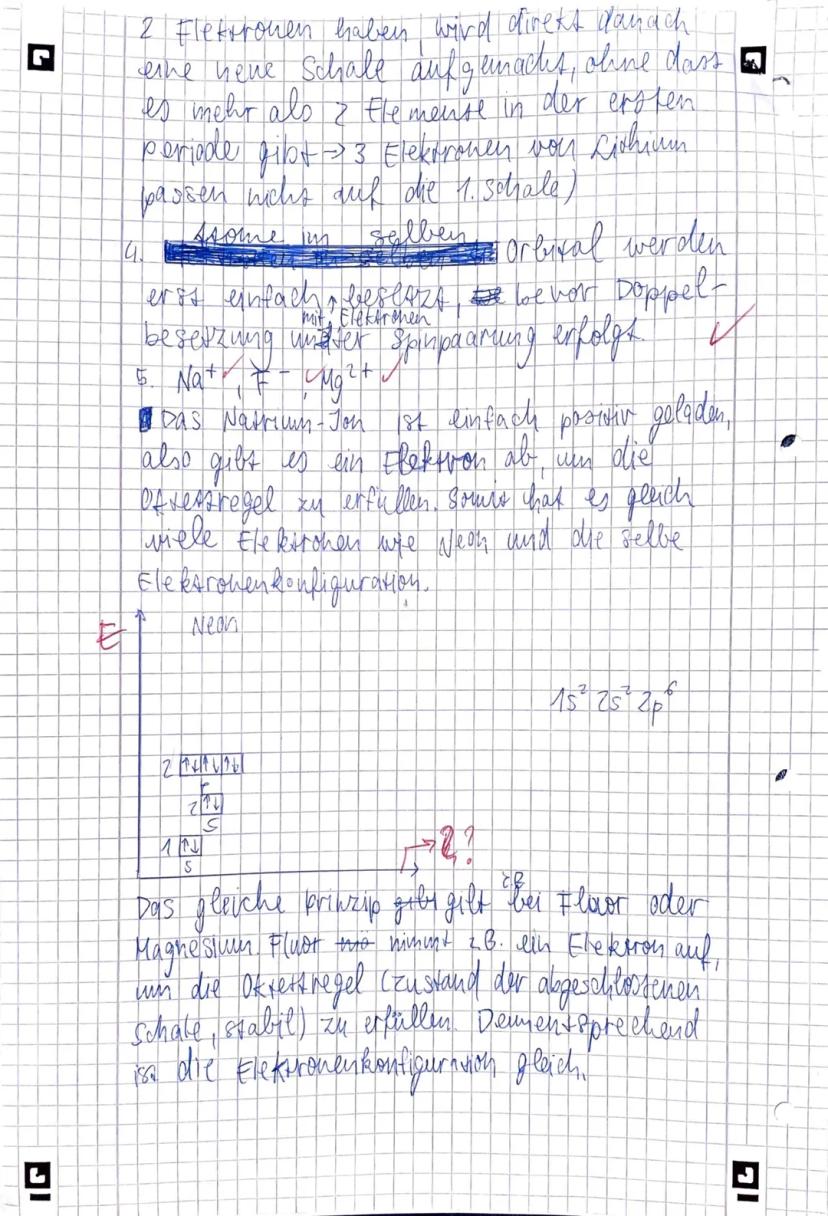 2 Elektronen haben, wird direkt danach
eine neue Schale aufgemacht, ohne dass
es mehr als 2 Elemente in der ersten
periode gibt → 3 Elektronen von Lithium
passen nicht auf die 1. Schale)
Atome im selben
4. Orbital werden
erst einfach besetzt, bevor Doppel-
mit Elektronen
besetzung unter Spinpaarung erfolgt.
5. Na⁺, F⁻, Mg²⁺
Das Natrium-Ion ist einfach positiv geladen,
also gibt es ein Elektron ab, um die
Oktettregel zu erfüllen. Somit hat es gleich
viele Elektronen wie Neon und die selbe
Elektronenkonfiguration.
E Neon
1s² 2s² 2p⁶
2 ↑↓ ↑↓ ↑↓
p
2 ↑↓
s
1 ↑↓
s
→ ?
z.B.
Das gleiche prinzip gilt bei Fluor oder
Magnesium. Fluor nimmt z.B. ein Elektron auf,
um die Oktettregel (zustand der abgeschlossenen
Schale, stabil) zu erfüllen. Dementsprechend
ist die Elektronenkonfiguration gleich.